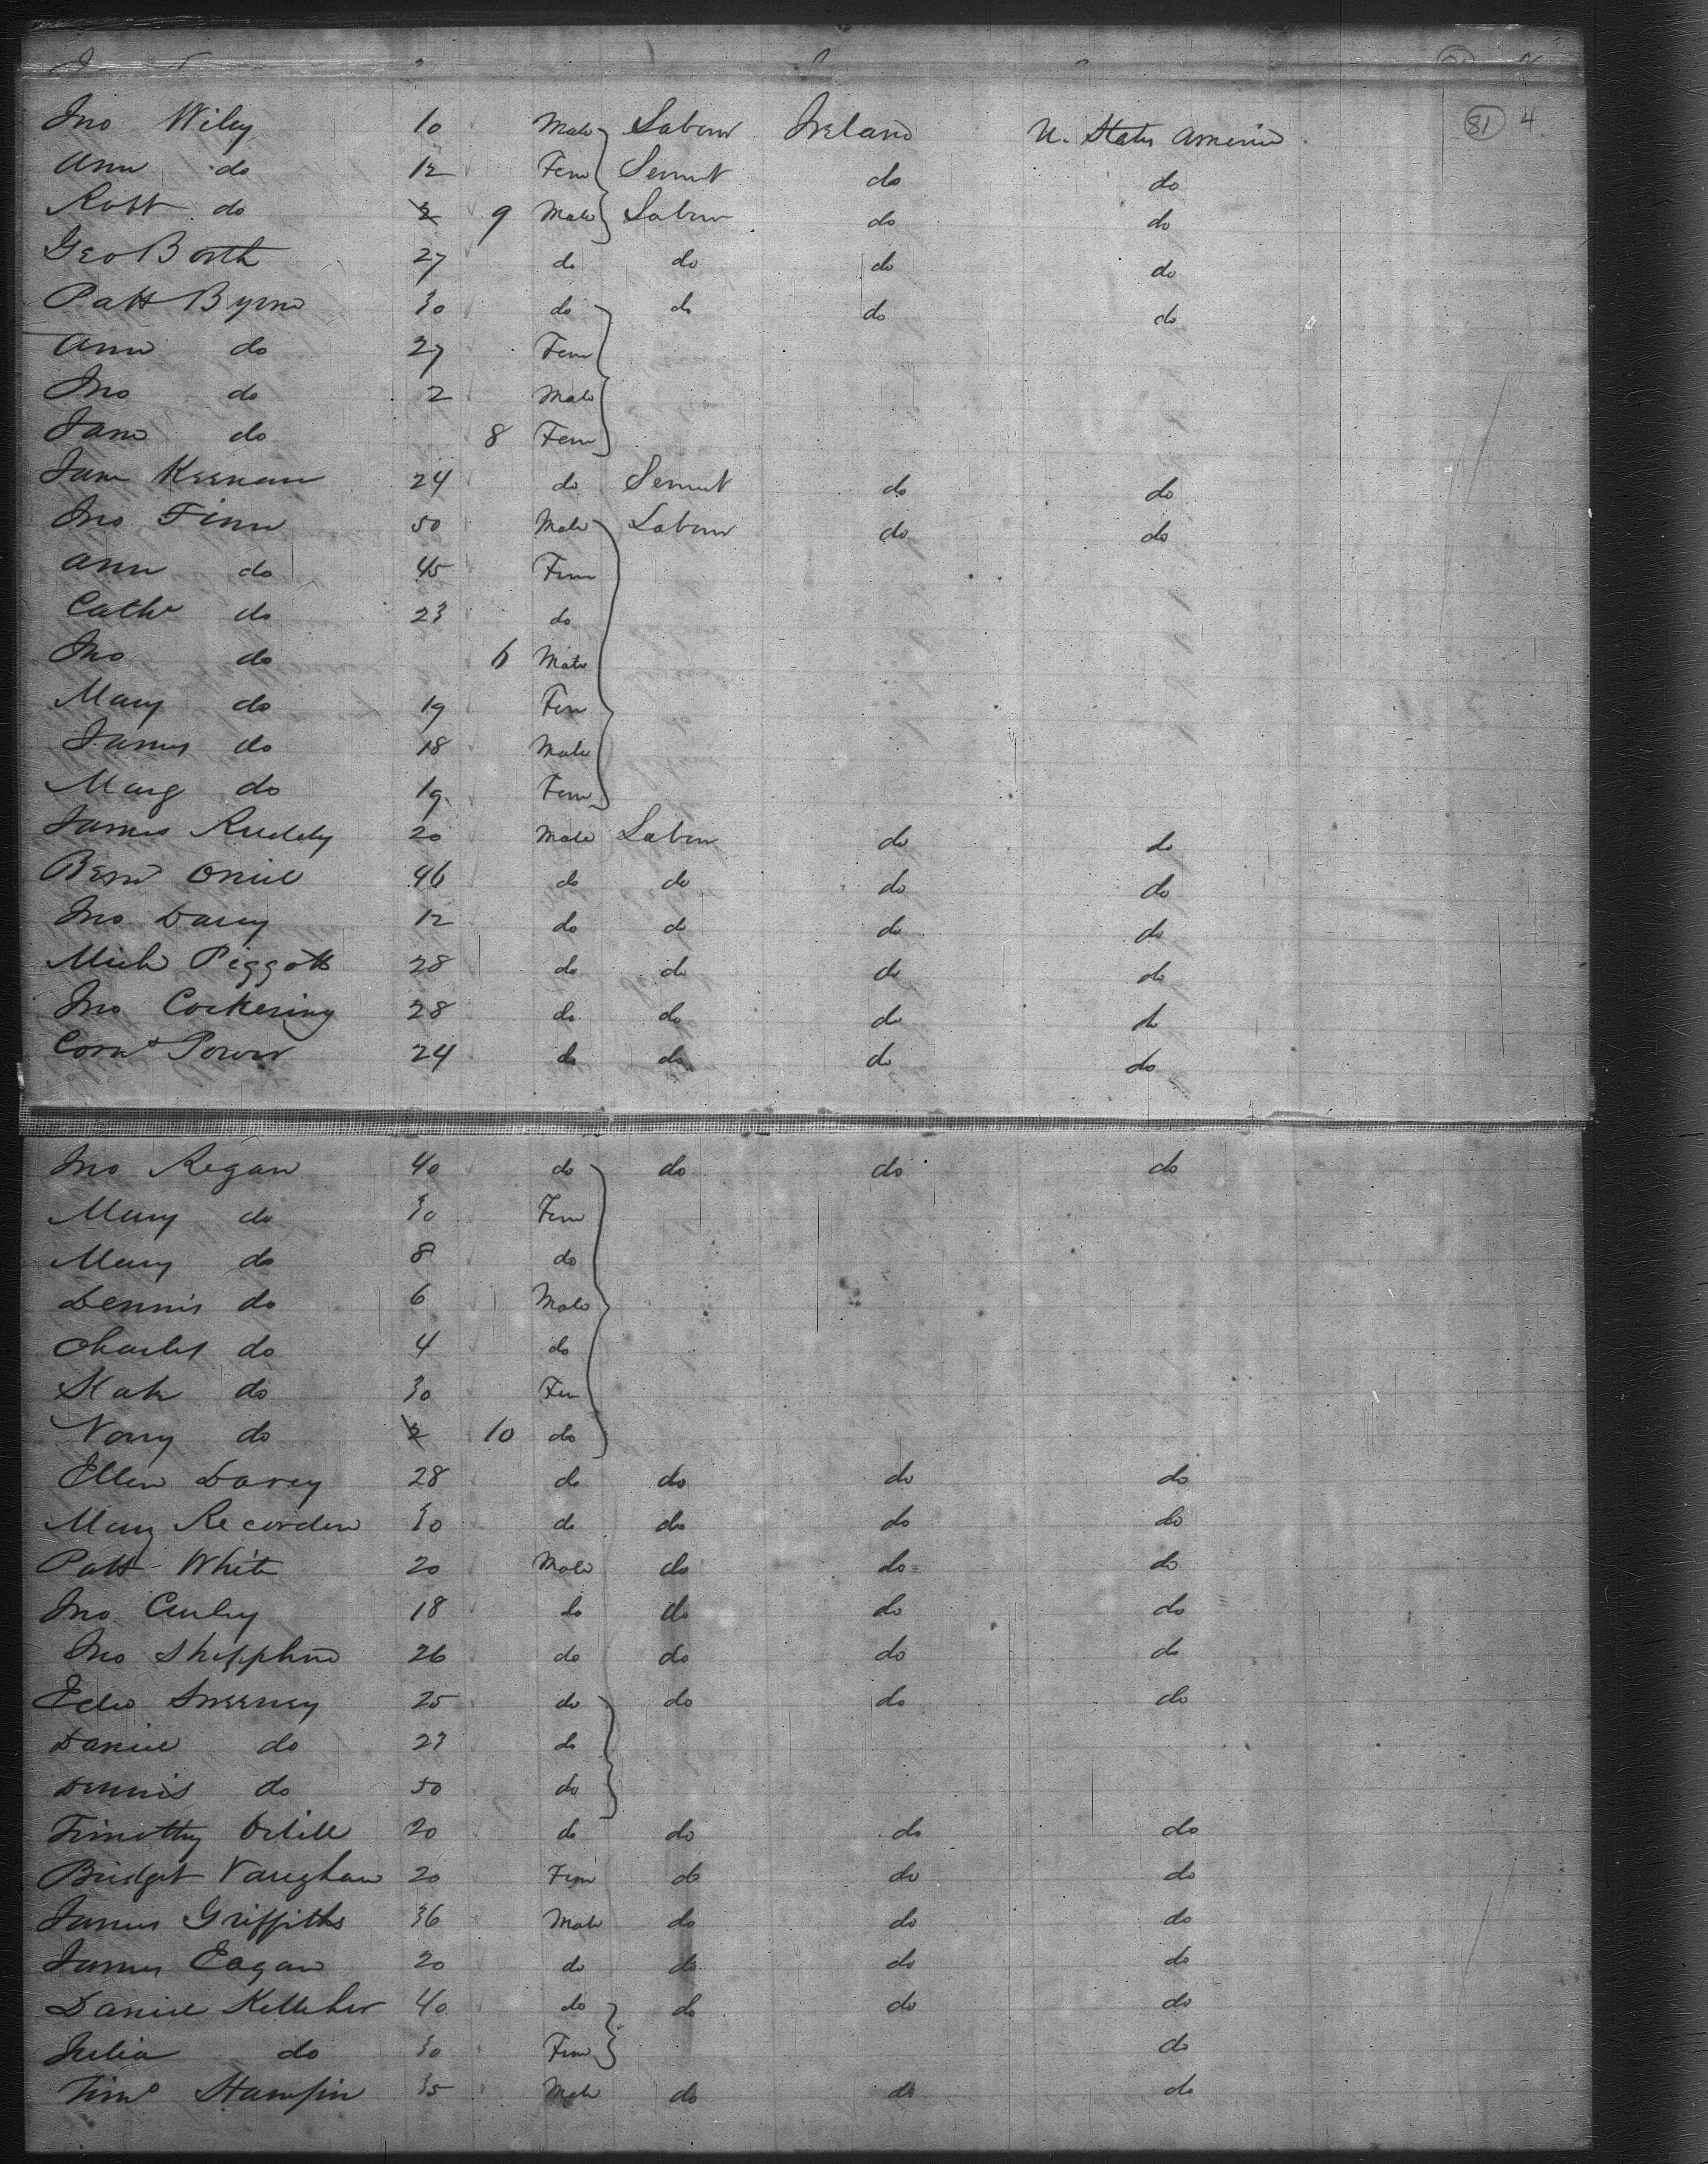 81 4
Jno Wiley 10 Male Labour Ireland U. States America
Ann do 12 Fem Servnt do do
Robt do 2 9 Male Labour do do
Geo Booth 27 do do do do
Patt Byrne 30 do do do do
Ann do 27 Fem
Jno do 2 Male
Jane do 8 Fem
Jane Keenan 24 do Servnt do do
Jno Finn 50 Male Labour do do
Ann do 45 Fem
Cathe do 23 do
Jno do 6 Male
Mary do 19 Fem
James do 18 Male
Marg do 19 Fem
James Ruddy 20 Male Labour do do
Bernd Oniel 46 do do do do
Jno Darcy 12 do do do do
Mich Piggott 28 do do do do
Jno Cockering 28 do do do do
Corns Power 24 do do do do
Jno Regan 40 do do do do
Mary do 30 Fem
Mary do 8 do
Dennis do 6 Male
Charles do 4 do
Kate do 30 Fem
Nory do 2 10 do
Ellen Darcy 28 do do do do
Mary Recorden 30 do do do do
Patt White 20 Male do do do
Jno Curley 18 do do do do
Jno Shepphrd 26 do do do do
Edwd Sweeney 25 do do do do
Daniel do 23 do
Dennis do 50 do
Timothy 20 do do do do
Bridget Vaughan 20 Fem do do do
James Griffiths 36 Male do do do
James Eagan 20 do do do do
Daniel Kelleher 40 do do do do
Julia do 30 Fem do
Timo 35 Male do do do